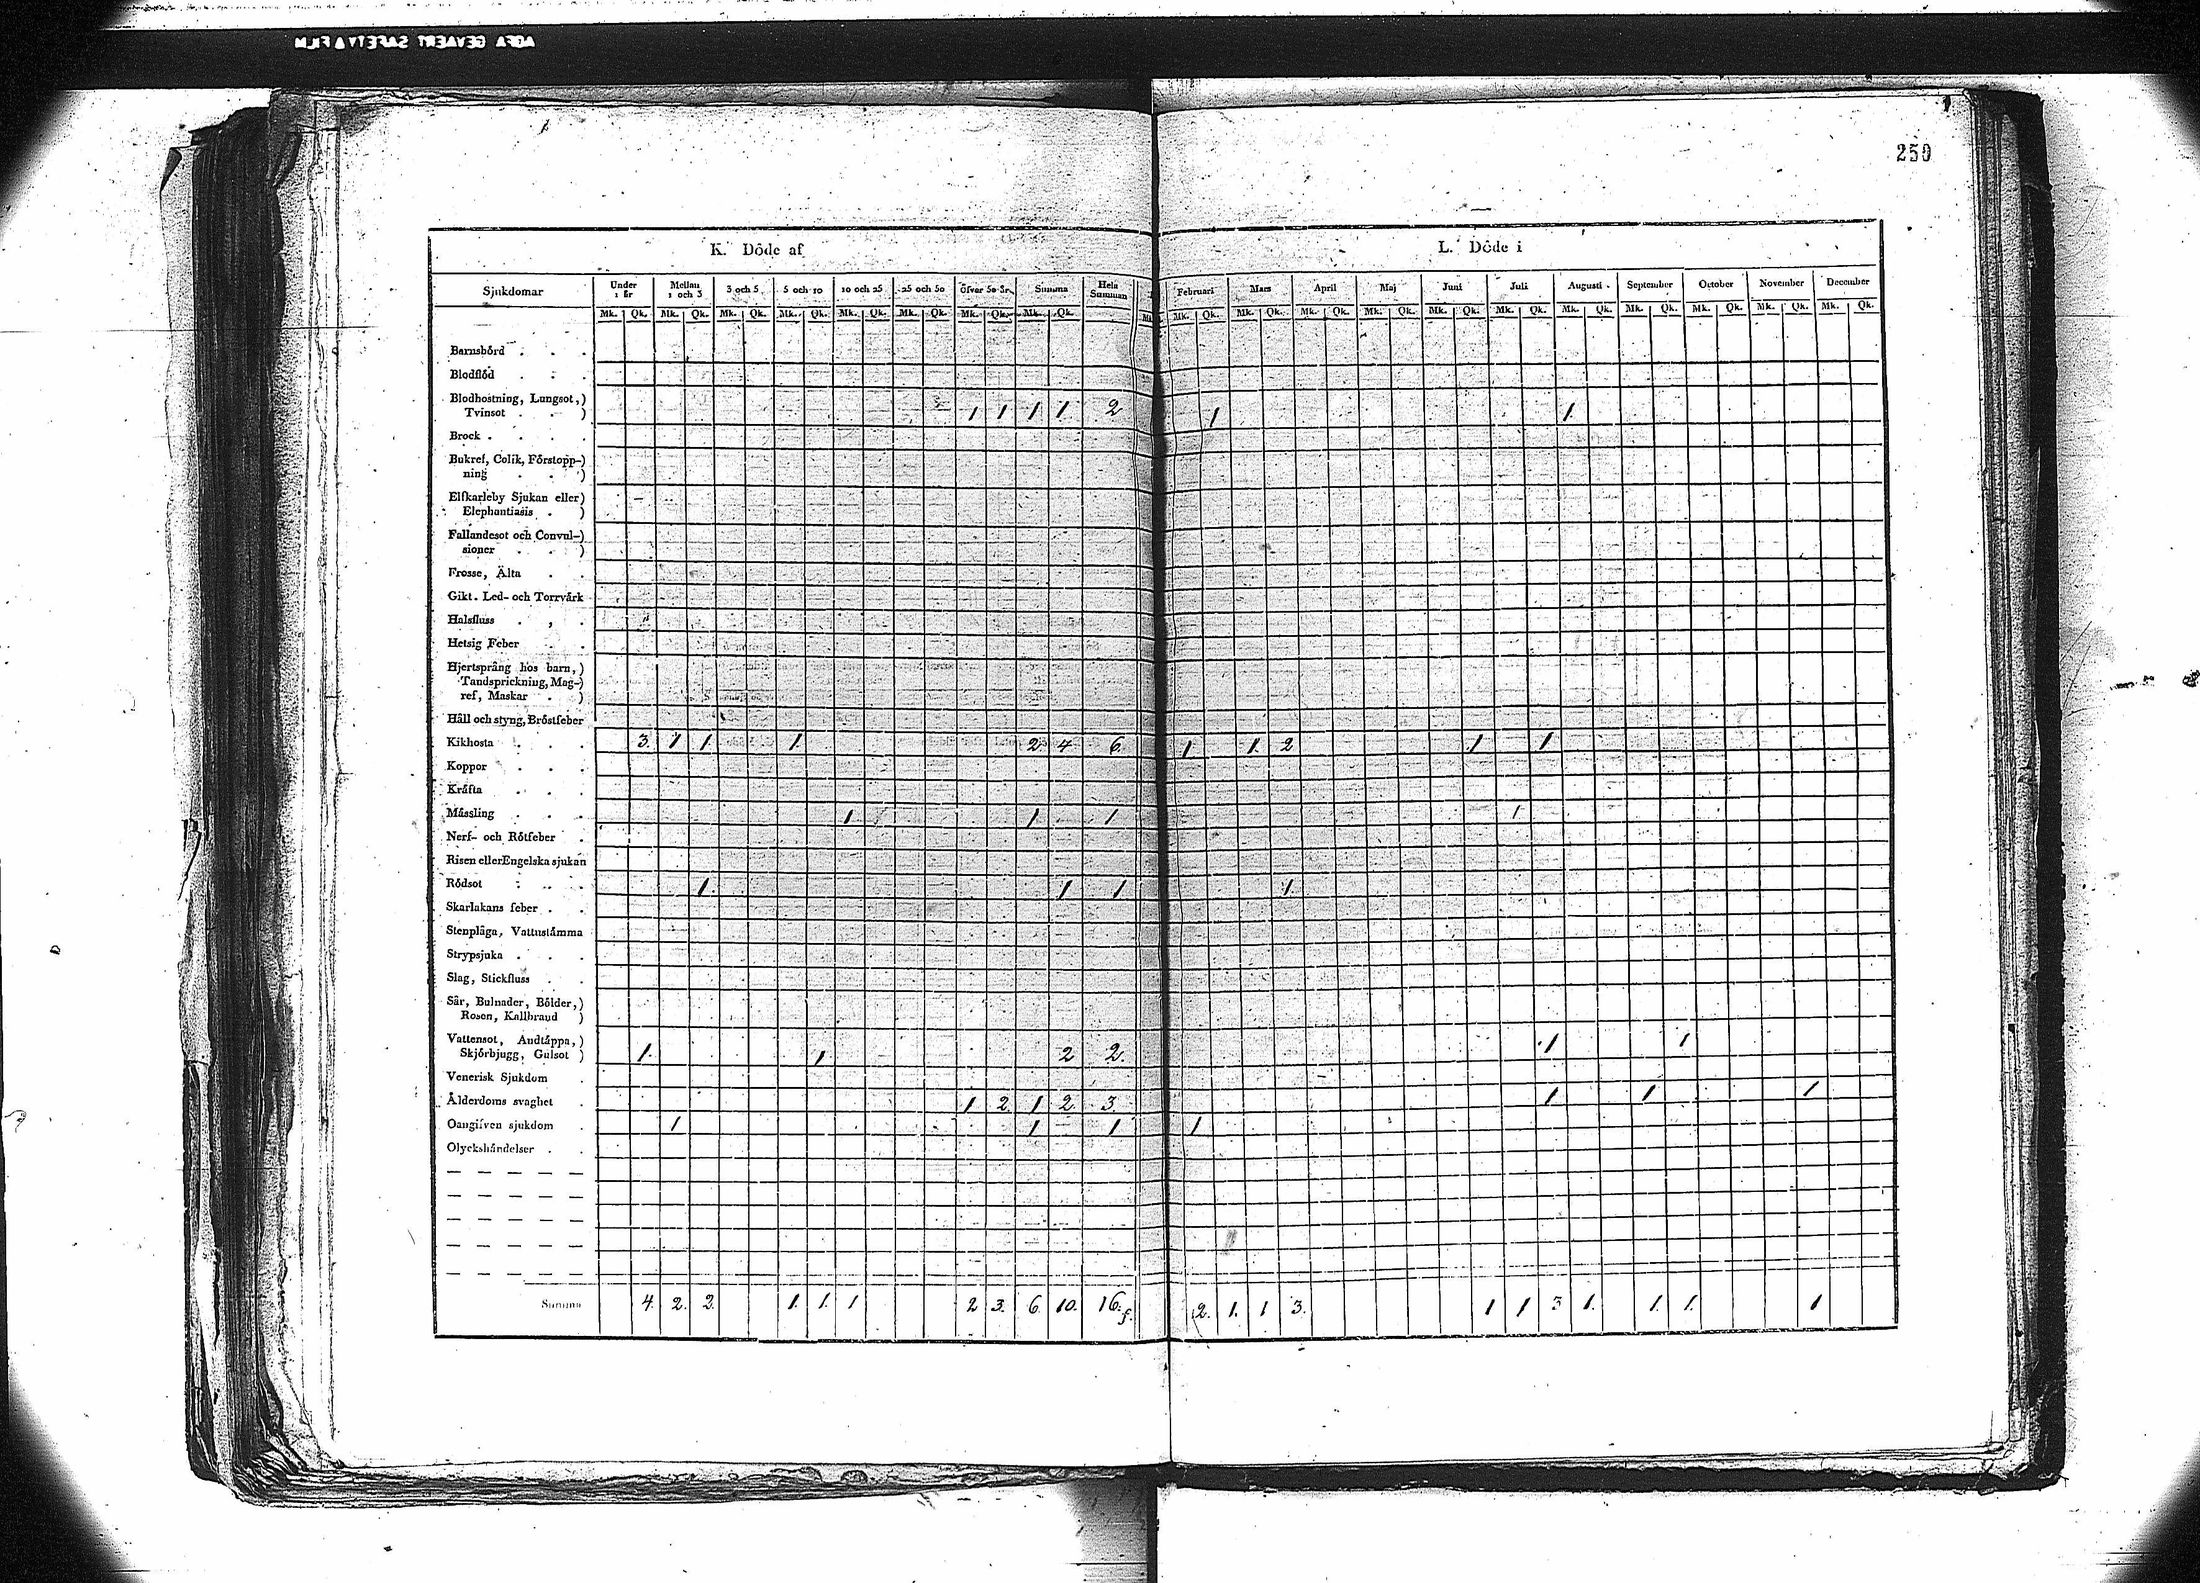 AGFA GEVAERT SAFETY FILM
259
K. Döde af
L. Döde i
Sjukdomar Under 1 år Mellan 1 och 3 3 och 5 5 och 10 10 och 25 25 och 50 Öfver 50 år Summa Hela Summan Februari Mars April Maj Juni Juli Augusti September October November December
Mk. Qk. Mk. Qk. Mk. Qk. Mk. Qk. Mk. Qk. Mk. Qk. Mk. Qk. Mk. Qk. Mk. Qk. Mk. Qk. Mk. Qk. Mk. Qk. Mk. Qk. Mk. Qk. Mk. Qk. Mk. Qk. Mk. Qk. Mk. Qk. Mk. Qk.
Barnsbörd . . .
Blodflöd . . .
Blodhostning, Lungsot,)
Tvinsot . . ) 1 1 1 1 2 1 1.
Brock . . . .
Bukref, Colik, Förstopp-)
ning . . )
Elfkarleby Sjukan eller)
Elephantiasis . )
Fallandesot och Convul-)
sioner . . )
Frosse, Älta . .
Gikt. Led- och Torrvärk
Halsfluss . , .
Hetsig Feber . .
Hjertsprång hos barn,)
Tandsprickning, Mag-)
ref, Maskar . )
Håll och styng, Bröstfeber
Kikhosta . . . 3. 1 1. 1. 2 4 6 1 1. 2 1 1
Koppor . . .
Kräfta . . .
Mässling . . . 1 1 1 1
Nerf- och Rötfeber .
Risen eller Engelska sjukan
Rödsot . . . 1. 1 1 1.
Skarlakans feber . .
Stenplåga, Vattustämma
Strypsjuka . . .
Slag, Stickfluss . .
Sår, Bulnader, Bölder,)
Rosen, Kallbrand )
Vattensot, Andtäppa,)
Skjörbjugg, Gulsot ) 1. 1 2 2. 1 1
Venerisk Sjukdom .
Ålderdoms svaghet . 1 2 1 2. 3 1 1 1
Oangifven sjukdom . 1 1 1 1
Olyckshändelser . .
— — — — —
— — — — —
— — — — —
— — — — —
— — — — —
Summa 4. 2. 2. 1. 1. 1 2 3. 6. 10. 16. 2. 1. 1 3. 1 1 3 1. 1. 1. 1